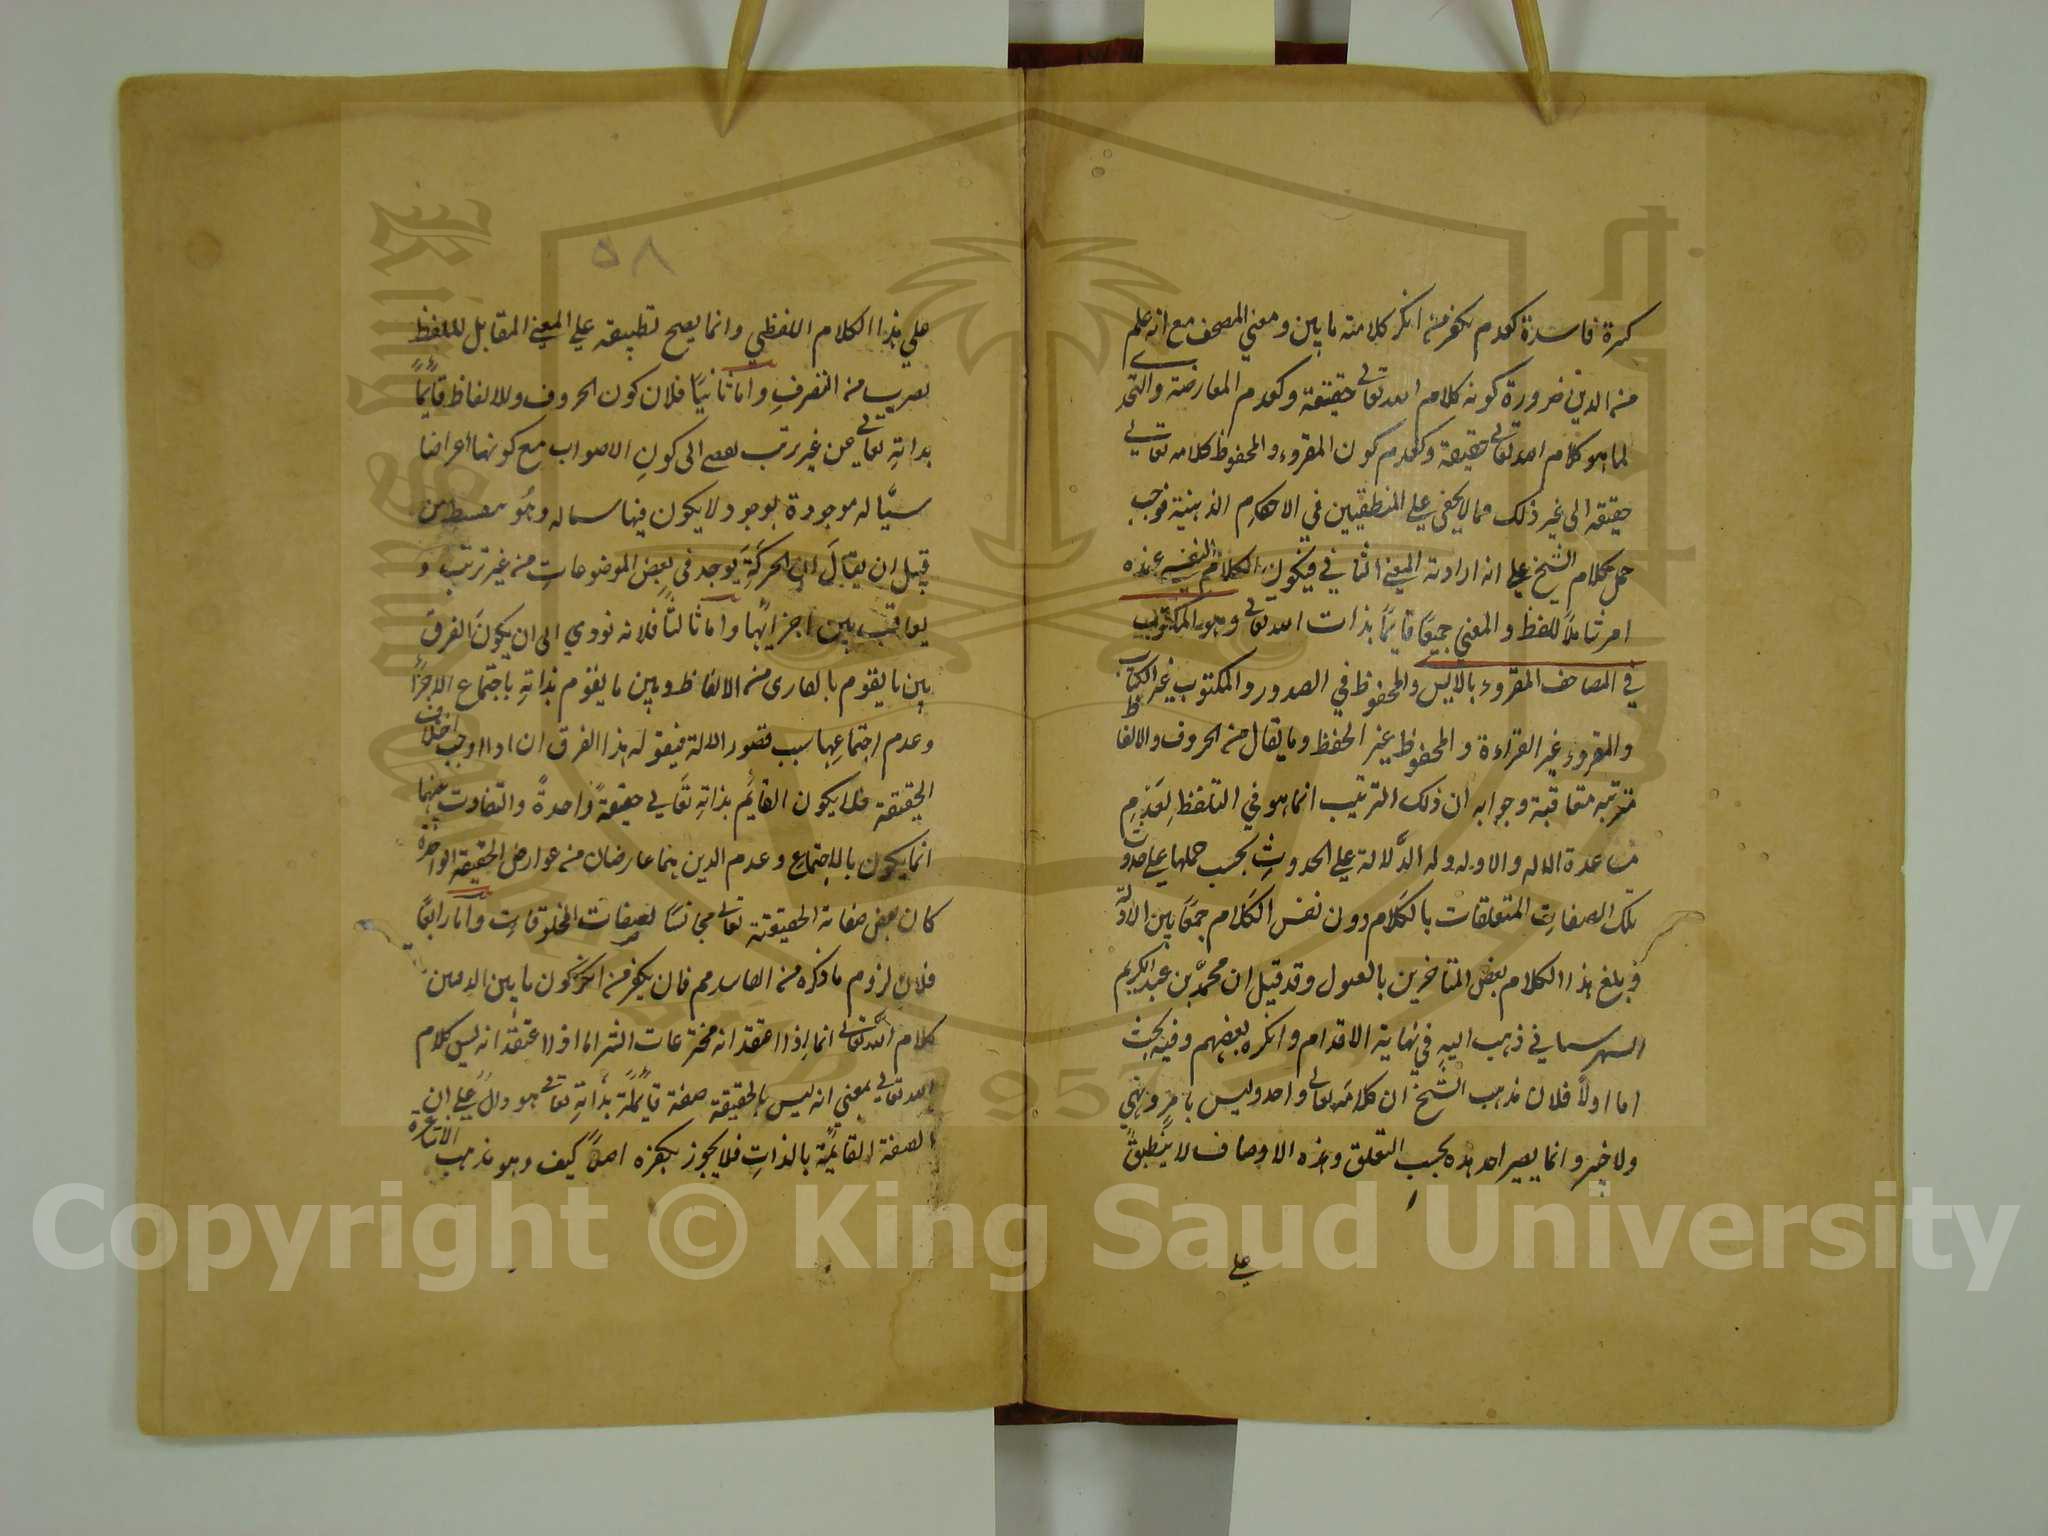 كثيرة فاسدة كعدم تكفير من انكر كلامية ما بين دفتي المصحف مع انه علم
من الدين ضرورة كونه كلام الله تعالى حقيقة وكعدم المعارضة والتحدي
لما هو كلام الله تعالى حقيقة وكعدم كون المقروء والمحفوظ كلامه تعالى
حقيقة الى غير ذلك مما لا يخفى على المتطفين في الاحكام الدينية فوجب
حمل كلام الشيخ على انه اراد به المعنى الثاني فيكون الكلام النفسي عنده
امر شاملاً للفظ والمعنى جميعًا قايمًا بذات الله تعالى وهو المكتوب
في المصاحف المقروء بالالسن والمحفوظ في الصدور والمكتوب غير الكتاب
والمقروء غير القراءة والمحفوظ غير الحفظ وما يقال من الحروف والالفاظ
مترتبة متعاقبة وجوابه ان ذلك الترتيب انما هو في التلفظ لعدم
مساعدة الاله والادله الدلالة على الحدوث يجب حملها على حدوث
تلك الصفات المتعلقات بالكلام دون نفس الكلام جمعًا بين الادلة
وبلغ هذا الكلام بعض المتاخرين بالقبول وقد قيل ان محمد بن عبد الكريم
الشهرستاني ذهب اليه في نهاية الاقدام وانكره بعضهم وفيه بحث
اما اولاً فلان مذهب الشيخ ان كلامه تعالى واحد وليس بامر ونهي
ولا خبر وانما يصير احد هذه بحسب التعلق وهذه الاوصاف لا ينطبق
على
٥٨
على هذا الكلام اللفظي وانما يصح تطبيقه على المعنى المقابل للفظ
بضرب من التصرف واما ثانيًا فلان كون الحروف وللالفاظ قايمًا
بذاته تعالى من غير ترتب يفضي الى كون الاصوات مع كونها اعراضا
سيَّاله موجودة بوجود لا يكون فيها سياله وهو سفسطة من
قبيل ان يقال ان الحركة يوجد في بعض الموضوعات من غير ترتب و
تعاقب بين اجزائها واما ثالثًا فلانه يؤدي الى ان يكون الفرق
بين ما يقوم بالقارى من الالفاظ وبين ما يقوم بذاته باجتماع الاجزاء
وعدم اجتماعها بسبب قصور الالة فيقوله هذا الفرق ان اوجب اختلاف
الحقيقة فلا يكون القائم بذاته تعالى حقيقةً واحدةً والتفاوت بينهما
انما يكون بالاجتماع وعدم الذين هما عارضان من عوارض الحقيقة الواحدة
كان بعض صفاته الحقيقية تعالى مجانسًا لصفات المخلوقات واما رابعًا
فلان لزوم ما ذكره من الفاسد مم فان تكفير من انكر كون ما بين الدفتين
كلام الله تعالى انما اذا اعتقد انه مخترعات البشر اما اذا اعتقد انه ليس كلام
الله تعالى بمعنى انه ليس بالحقيقة صفة قايمة بذاته تعالى هو دال على ان
الصفة القايمة بالذات فلا يجوز تكفيره اصلاً كيف وهو مذهب الاشاعرة
Copyright © King Saud University
1957